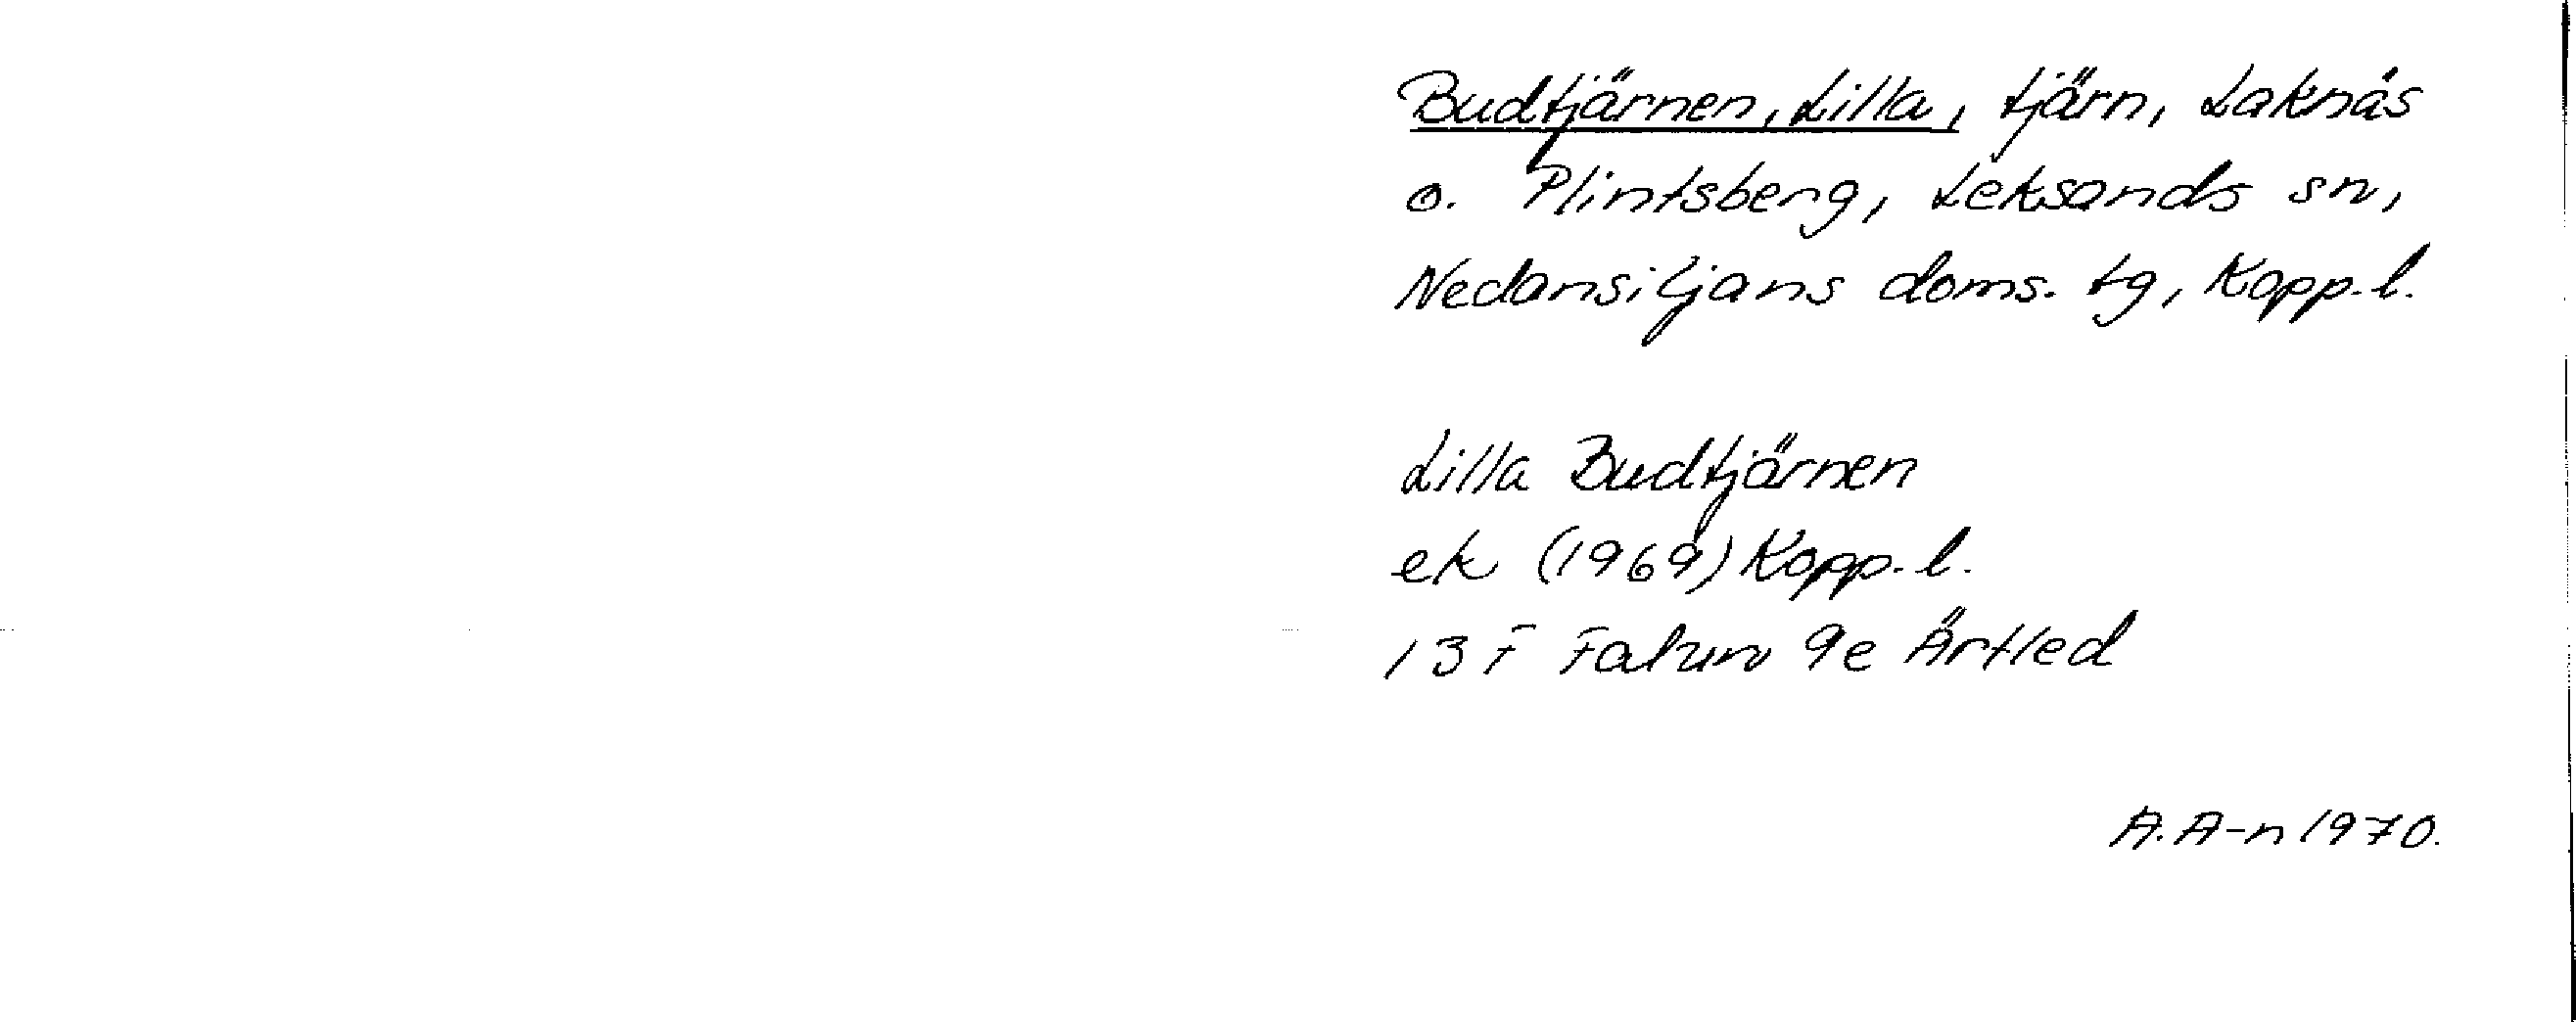 Budtjärnen, Lilla, tjärn, Laknäs
o. Plintsberg, Leksands sn,
Nedansiljans doms. tg, Kopp. l.
Lilla Budtjärnen
ek (1969) Kopp. l.
13 F Falun 9e Ärtled
A. A-n 1970.